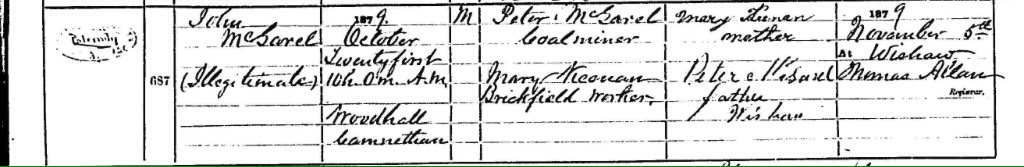 John
McGarel
(Illegitimate)
687
1879
October
Twentyfirst
10h. 0m. A.M.
Woodhall
Cambusnethan
M
Peter McGarel
Coalminer
Mary Keenan
Brickfield Worker.
Mary Keenan
mother
Peter McGarel
father
Wishaw
1879
November 5th
At Wishaw
Thomas Allan
Registrar.